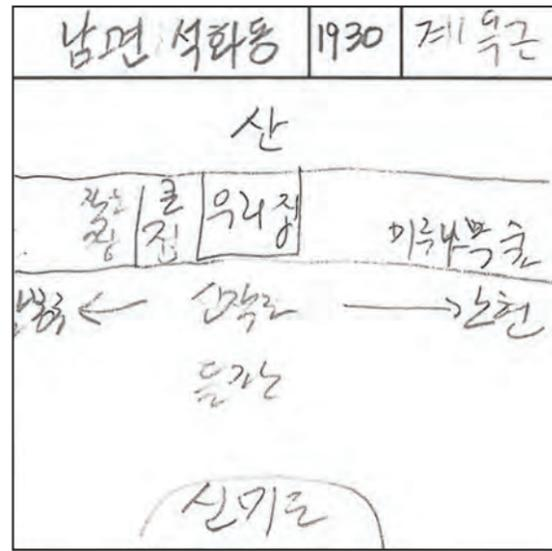 남면 석화동 1930 계욱근
산
작은집 큰집 우리집
미루나무숲
← 신작로 → 간현
들가는
신기도